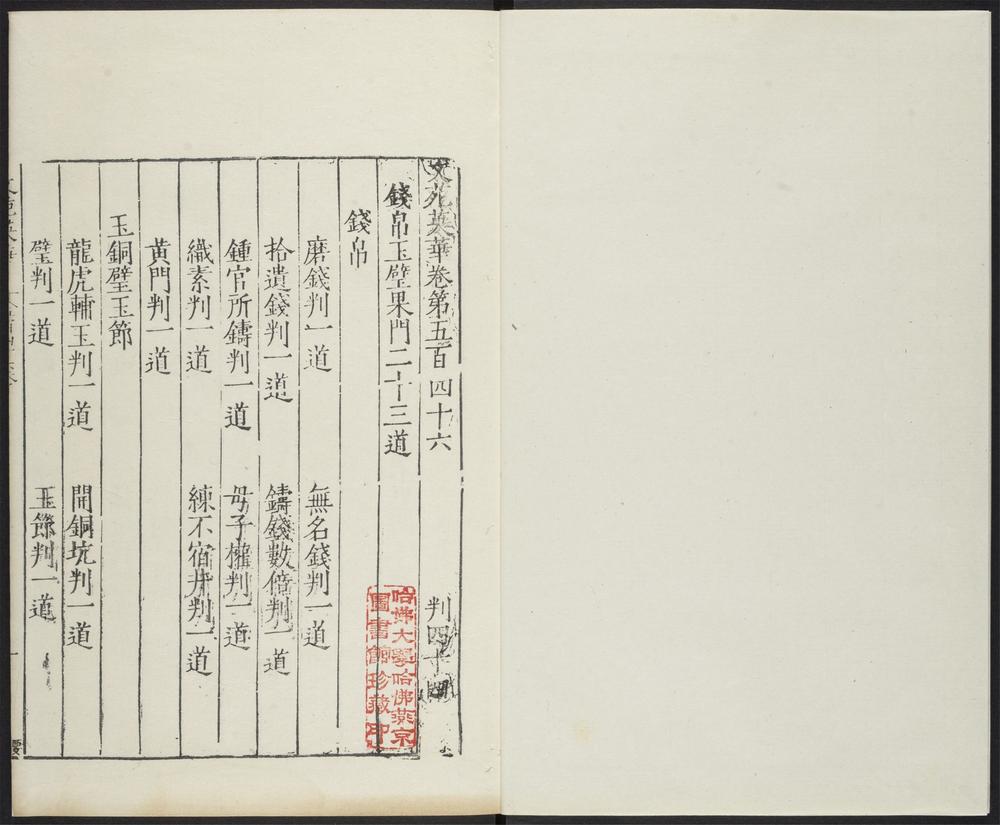 文苑英華卷第五百四十六
判四十四
錢帛玉璧果門二十三道
錢帛
磨錢判一道
無名錢判一道
拾遺錢判一道
鑄錢數倍判一道
鍾官所鑄判一道
母子權判一道
織素判一道
練不宿井判一道
黃門判一道
玉銅璧玉節
龍虎輔玉判一道
開銅坑判一道
璧判一道
玉節判一道
哈佛大學哈佛燕京
圖書館珍藏印